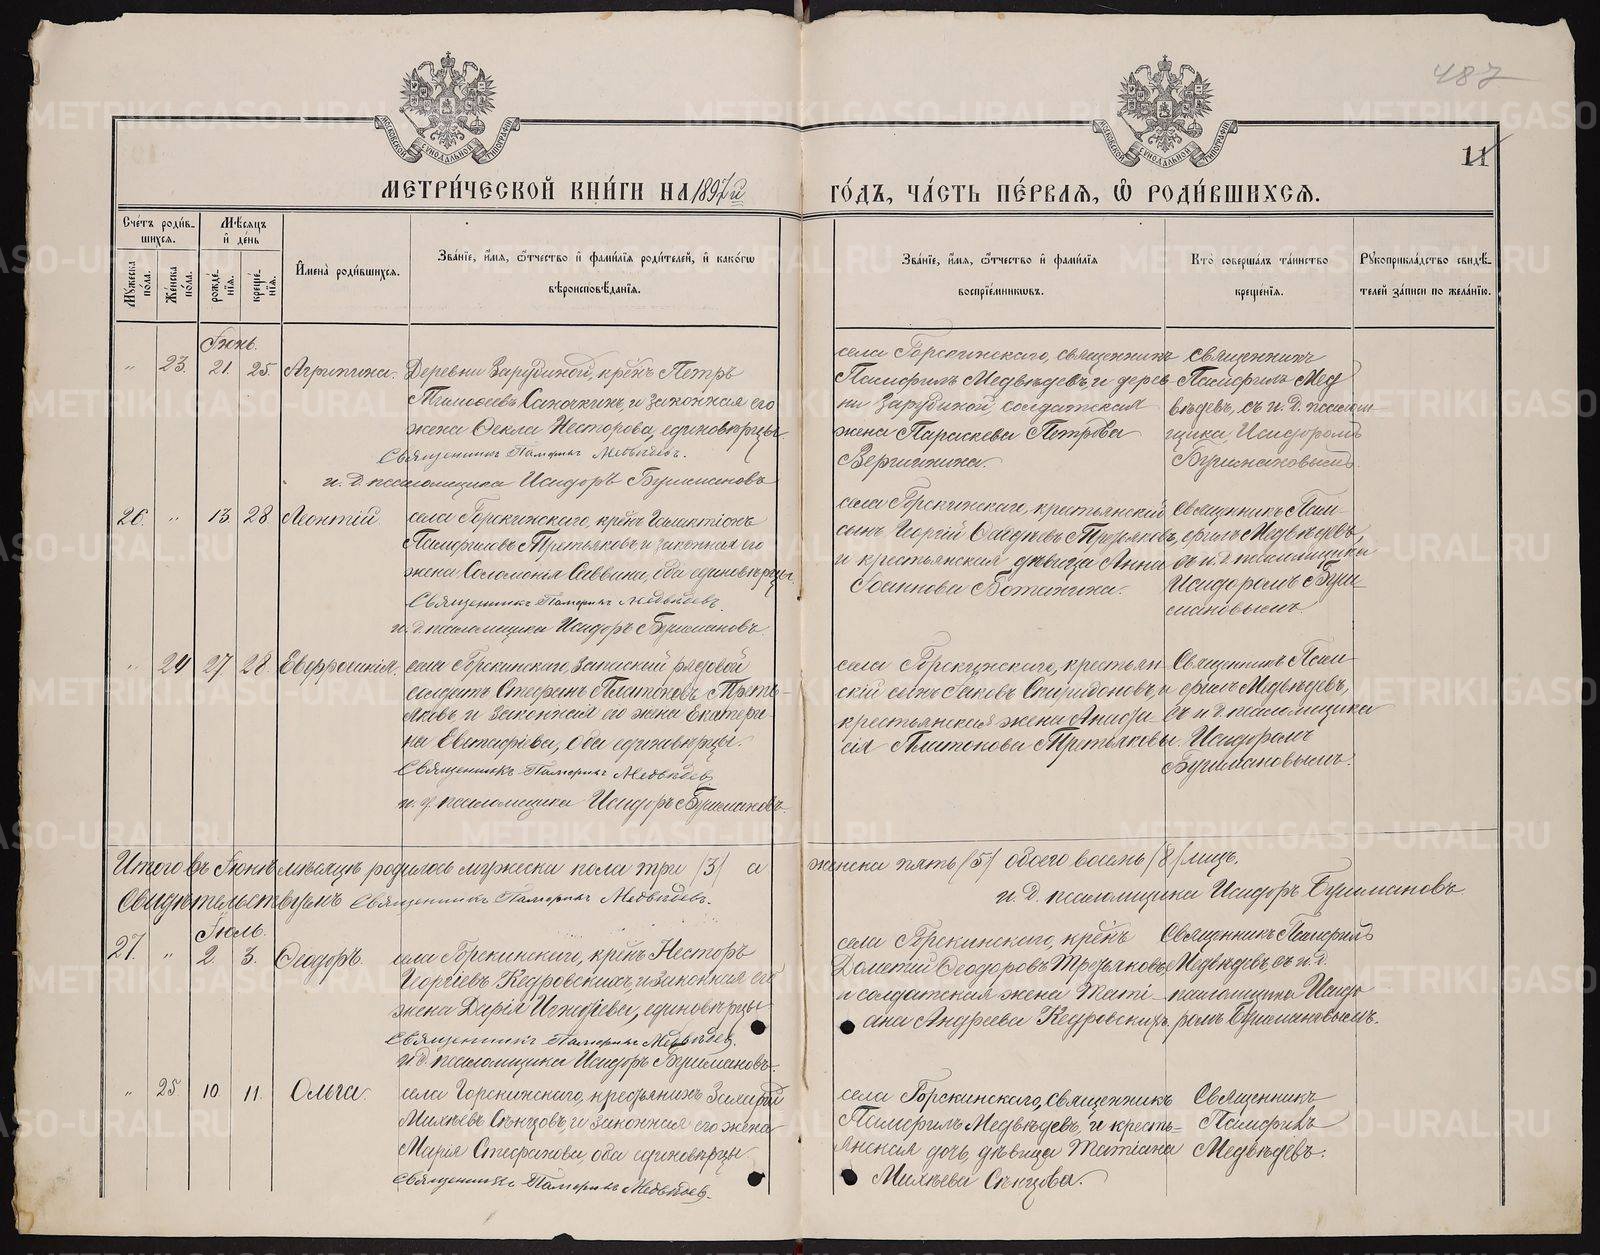 487
11
МЕТРИ́ЧЕСКОЙ КНИ́ГИ НА 1897й ГО́ДЪ, ЧА́СТЬ ПЕ́РВАЯ, Ѿ РОДИ́ВШИХСЯ.
Сче́тъ роди́в-
шихся.
Му́жеска по́ла.
Же́нска по́ла.
Мѣ́сяцъ и де́нь
рожде́нїя.
креще́нїя.
И҆мена̀ роди́вшихся.
Зва́нїе, и҆́мя, ѻ҆́тчество и҆ фами́лїя роди́телей, и҆ како́гѡ
вѣроисповѣ́данїя.
Зва́нїе, и҆́мя, ѻ҆́тчество и҆ фами́лїя
воспрїе́мниковъ.
Кто̀ соверша́лъ та́инство
креще́нїя.
Рꙋкоприкла́дство свидѣ́-
телей за́писи по жела́нїю.
Іюнь.
" 23. 21. 25. Агрипина. Деревни Зарубиной, крнъ Петръ
Тимоѳеевъ Саночкинъ, и законная его
жена Ѳекла Несторова, единовѣрцы
Священникъ Памфилъ Медвѣдевъ.
и. д. псаломщика Исидоръ Бушмановъ
села Горскинскаго, священникъ
Памфилъ Медвѣдевъ, и дерев
ни Зарубиной, солдатская
жена Параскева Петрова
Священникъ
Памфилъ Мед
вѣдевъ, съ и. д. псалом-
щика, Исидоромъ
Бушмановымъ.
26. " 13. 28 Леонтій. села Горскинскаго, крнъ Галактіонъ
Памфиловъ Третьяковъ и законная его
жена, Соломонія Саввина, оба единовѣрцы
Священникъ Памфилъ Медвѣдевъ.
и. д. псаломщика Исидоръ Бушмановъ
села Горскинскаго, крестьянскій
сынъ Георгій Третьяковъ,
и крестьянская дѣвица Анна
Іоаннова
Священникъ Пам-
филъ Медвѣдевъ,
съ и. д. псаломщика
Исидоромъ Буш-
мановымъ
" 24 27 28. Евфросинія. села Горскинскаго, запасный рядовой
солдатъ Стефанъ Платоновъ Треть-
яковъ, и законная его жена Екатери-
на Евстафіева, оба единовѣрцы.
Священникъ Памфилъ Медвѣдев
и. д. псаломщика Исидоръ Бушмановъ.
села Горскинскаго, крестьян
скій сынъ Іаковъ Спиридоновъ, и
крестьянская жена Анафи-
сія Платонова Третьякова.
Священникъ Пам-
филъ Медвѣдевъ,
съ и. д. псаломщика
Исидоромъ
Бушмановымъ.
Итого въ Іюнѣ мѣсяцѣ родилось мужеска пола три /3/ а женска пять /5/ обоего восемь /8/ лицъ.
Свидѣтельствуемъ Священникъ Памфилъ Медвѣдевъ. и. д. псаломщика Исидоръ Бушмановъ
Іюль.
27. " 2. 3. Ѳеодоръ. села Горскинскаго, крнъ Несторъ
Георгіевъ Кедровскихъ, и законная его
жена Дарія Игнатіева, единовѣрцы
Священникъ Памфилъ Медвѣдев.
и д. псаломщика Исидоръ Бушмановъ.
села Горскинскаго, крнъ
Дометій Ѳеодоровъ Третьяковъ
и солдатская жена Таті-
ана Андреева Кедровскихъ.
Священникъ Памфилъ
Медвѣдевъ, съ и. д.
псаломщика Исидо
ромъ Бушмановымъ.
" 25 10 11. Ольга. села Горскинскаго,
Михѣевъ Сѣнцовъ, и законная его жена
Марія Стефанова, оба единовѣрцы.
Священникъ Памфилъ Медвѣдев.
села Горскинскаго, Священникъ
Памфилъ Медвѣдевъ, и кресть-
янская дочь, дѣвица Татіана
Михѣева Сѣнцова.
Священникъ
Памфилъ
Медвѣдевъ.
METRIKI.GASO-URAL.RU